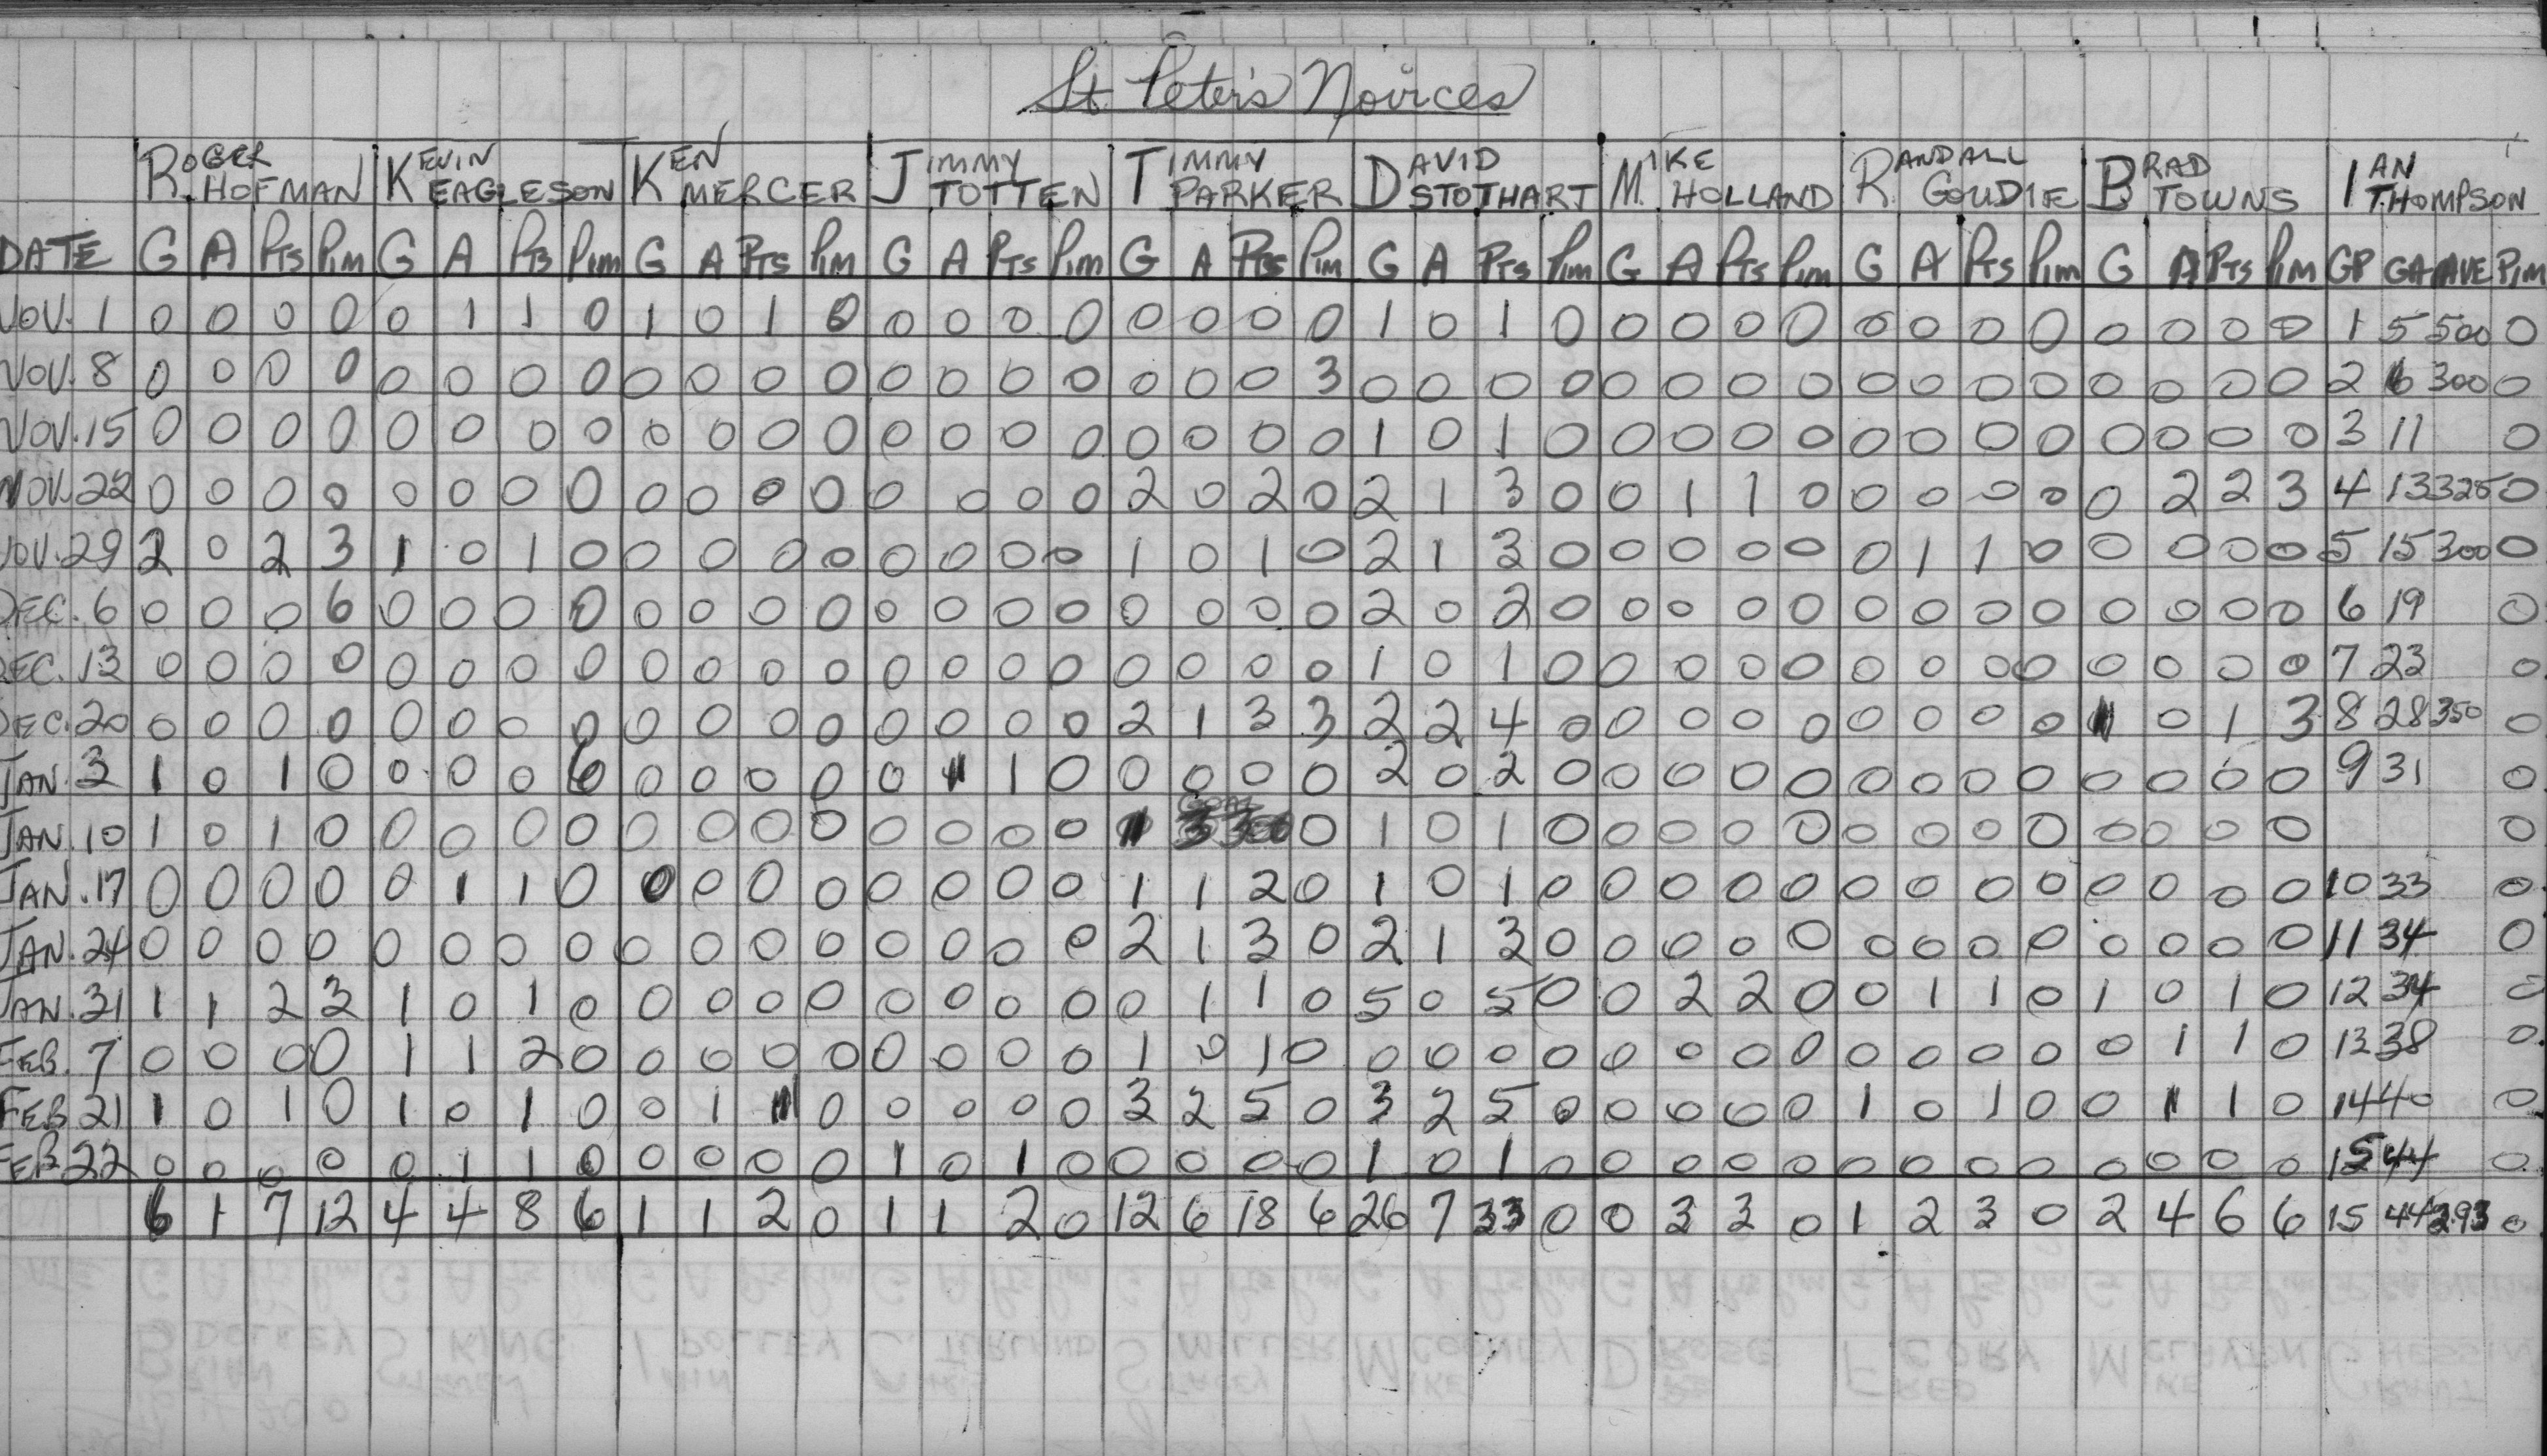 St. Peter's Novices
ROGER HOFMAN KEVIN EAGLESON KEN MERCER JIMMY TOTTEN TIMMY PARKER DAVID STOTHART MIKE HOLLAND RANDALL GOUDIE BRAD TOWNS IAN THOMPSON
DATE G A PTS PIM G A PTS PIM G A PTS PIM G A PTS PIM G A PTS PIM G A PTS PIM G A PTS PIM G A PTS PIM G A PTS PIM GP GA AVE PIM
NOV. 1 0 0 0 0 0 1 1 0 1 0 1 0 0 0 0 0 0 0 0 0 1 0 1 0 0 0 0 0 0 0 0 0 0 0 0 0 1 5 500 0
NOV. 8 0 0 0 0 0 0 0 0 0 0 0 0 0 0 0 0 0 0 0 3 0 0 0 0 0 0 0 0 0 0 0 0 0 0 0 0 2 6 300 0
NOV. 15 0 0 0 0 0 0 0 0 0 0 0 0 0 0 0 0 0 0 0 0 1 0 1 0 0 0 0 0 0 0 0 0 0 0 0 0 3 11 0
NOV. 22 0 0 0 0 0 0 0 0 0 0 0 0 0 0 0 0 2 0 2 0 2 1 3 0 0 1 1 0 0 0 0 0 0 2 2 3 4 13 325 0
NOV. 29 2 0 2 3 1 0 1 0 0 0 0 0 0 0 0 0 1 0 1 0 2 1 3 0 0 0 0 0 0 1 1 0 0 0 0 0 5 15 300 0
DEC. 6 0 0 0 6 0 0 0 0 0 0 0 0 0 0 0 0 0 0 0 0 2 0 2 0 0 0 0 0 0 0 0 0 0 0 0 0 6 19 0
DEC. 13 0 0 0 0 0 0 0 0 0 0 0 0 0 0 0 0 0 0 0 0 1 0 1 0 0 0 0 0 0 0 0 0 0 0 0 0 7 23 0
DEC. 20 0 0 0 0 0 0 0 0 0 0 0 0 0 0 0 0 2 1 3 3 2 2 4 0 0 0 0 0 0 0 0 0 1 0 1 3 8 28 350 0
JAN. 3 1 0 1 0 0 0 0 6 0 0 0 0 0 1 1 0 0 0 0 0 2 0 2 0 0 0 0 0 0 0 0 0 0 0 0 0 9 31 0
GOAL
JAN. 10 1 0 1 0 0 0 0 0 0 0 0 0 0 0 0 0 1 3 300 0 1 0 1 0 0 0 0 0 0 0 0 0 0 0 0 0 0
JAN. 17 0 0 0 0 0 1 1 0 0 0 0 0 0 0 0 0 1 1 2 0 1 0 1 0 0 0 0 0 0 0 0 0 0 0 0 0 10 33 0
JAN. 24 0 0 0 0 0 0 0 0 0 0 0 0 0 0 0 0 2 1 3 0 2 1 3 0 0 0 0 0 0 0 0 0 0 0 0 0 11 34 0
JAN. 31 1 1 2 3 1 0 1 0 0 0 0 0 0 0 0 0 0 1 1 0 5 0 5 0 0 2 2 0 0 1 1 0 1 0 1 0 12 34 0
FEB. 7 0 0 0 0 1 1 2 0 0 0 0 0 0 0 0 0 1 0 1 0 0 0 0 0 0 0 0 0 0 0 0 0 0 1 1 0 13 38 0
FEB 21 1 0 1 0 1 0 1 0 0 1 1 0 0 0 0 0 3 2 5 0 3 2 5 0 0 0 0 0 1 0 1 0 0 1 1 0 14 40 0
FEB 22 0 0 0 0 0 1 1 0 0 0 0 0 1 0 1 0 0 0 0 0 1 0 1 0 0 0 0 0 0 0 0 0 0 0 0 0 15 44 0
6 1 7 12 4 4 8 6 1 1 2 0 1 1 2 0 12 6 18 6 26 7 33 0 0 3 3 0 1 2 3 0 2 4 6 6 15 44 293 0